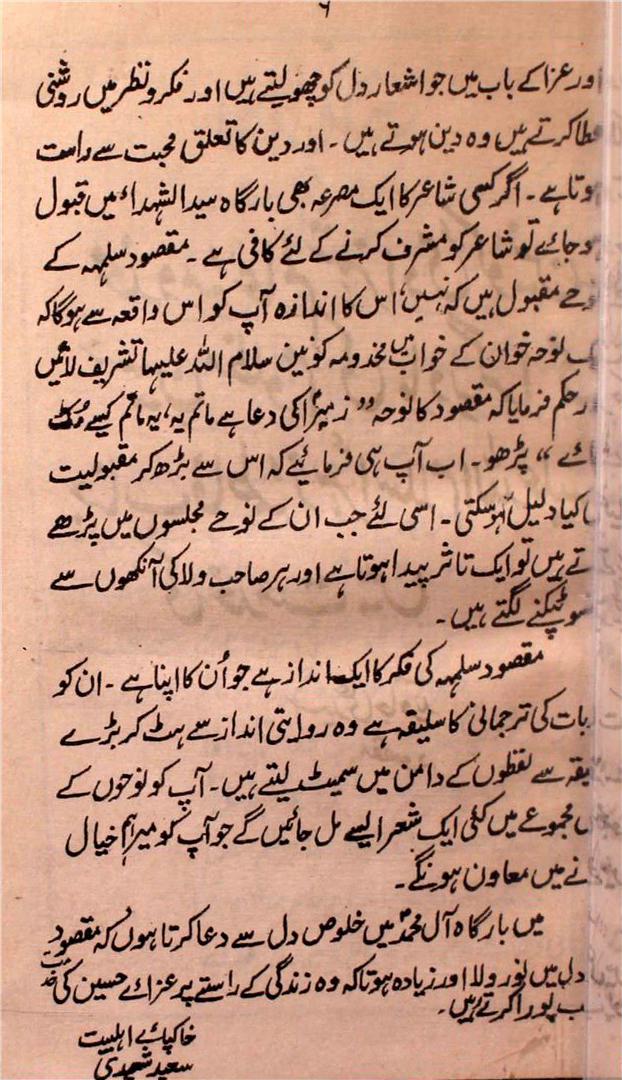 ۶
اور عزا کے باب میں جو اشعار دل کو چھو لیتے ہیں اور فکر و نظر میں روشنی
عطا کرتے ہیں وہ دین ہوتے ہیں۔ اور دین کا تعلق محبت سے راست
ہوتا ہے۔ اگر کسی شاعر کا ایک مصرعہ بھی بارگاہ سید الشہداء میں قبول
ہو جائے تو شاعر کو مشرف کرنے کے لئے کافی ہے۔ مقصود سلمہہ کے
نوحے مقبول ہیں کہ نہیں، اس کا اندازہ آپ کو اس واقعہ سے ہوگا کہ
ایک نوحہ خوان کے خواب میں مخدومہ کونین سلام اللہ علیہا تشریف لائیں
اور حکم فرمایا کہ مقصود کا نوحہ "زہرؑا کی دعا ہے ماتم یہ، یہ ماتم کیسے رُک
جائے" پڑھو۔ اب آپ ہی فرمائیے کہ اس سے بڑھ کر مقبولیت
کیا دلیل ہو سکتی۔ اسی لئے جب ان کے نوحے مجلسوں میں پڑھے
تے ہیں تو ایک تاثر پیدا ہوتا ہے اور ہر صاحب ولا کی آنکھوں سے
سو ٹپکنے لگتے ہیں۔
مقصود سلمہہ کی فکر کا ایک انداز ہے جو اُن کا اپنا ہے۔ ان کو
بات کی ترجمانی کا سلیقہ ہے وہ روایتی انداز سے ہٹ کر بڑے
یقہ سے لفظوں کے دامن میں سمیٹ لیتے ہیں۔ آپ کو نوحوں کے
مجموعے میں کئی ایک شعر ایسے مل جائیں گے جو آپ کو میرا ہم خیال
نے میں معاون ہونگے۔
میں بارگاہ آل محمدؐ میں خلوص دل سے دعا کرتا ہوں کہ مقصود
دل میں نور ولا اور زیادہ ہو تا کہ وہ زندگی کے راستے پر عزائے حسین کی
ب پورا کرتے رہیں۔
خاکپائے اہلبیت
سعید شہیدی